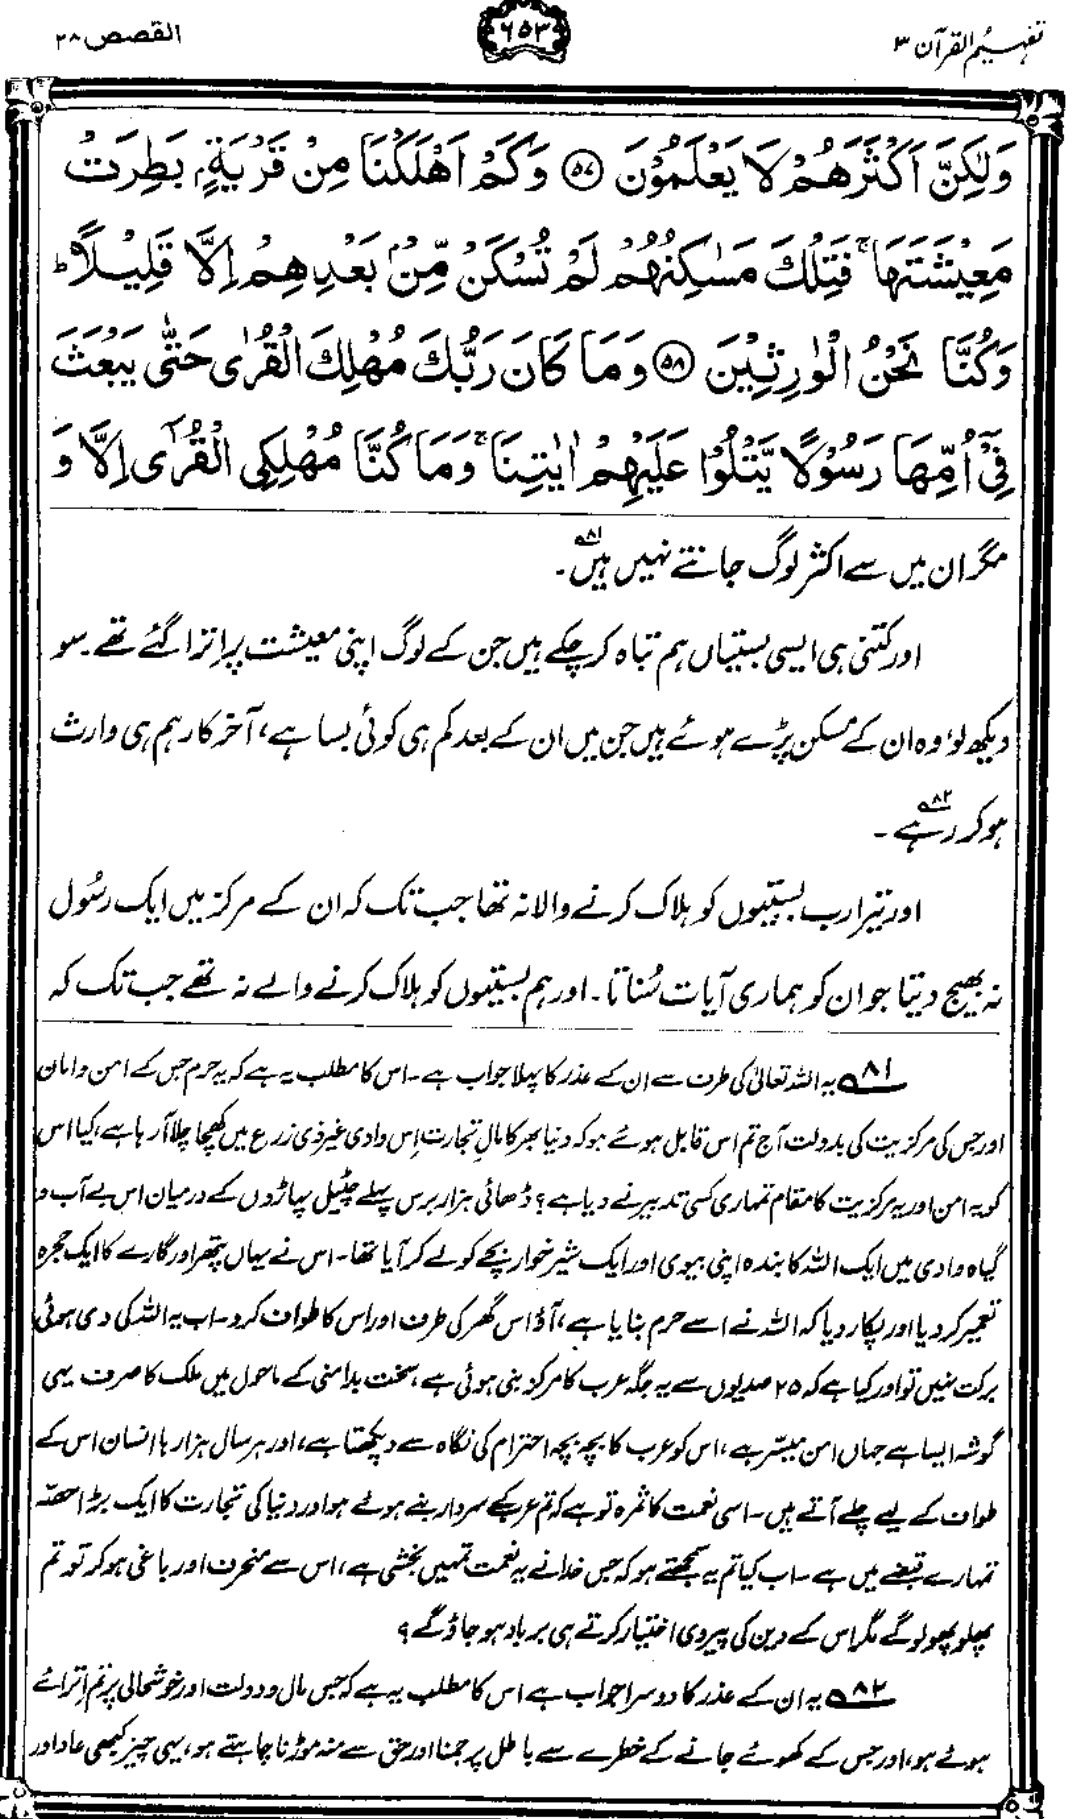 تفہیم القرآن ۳
۶۵۳
القصص ۲۸
وَلٰكِنَّ اَكْثَرَهُمْ لَا يَعْلَمُوْنَ ﴿۵۷﴾ وَكَمْ اَهْلَكْنَا مِنْ قَرْيَةٍۭ بَطِرَتْ
مَعِيْشَتَهَا ۚ فَتِلْكَ مَسٰكِنُهُمْ لَمْ تُسْكَنْ مِّنْۢ بَعْدِهِمْ اِلَّا قَلِيْلًا ؕ
وَكُنَّا نَحْنُ الْوٰرِثِيْنَ ﴿۵۸﴾ وَمَا كَانَ رَبُّكَ مُهْلِكَ الْقُرٰى حَتّٰى يَبْعَثَ
فِيْۤ اُمِّهَا رَسُوْلًا يَّتْلُوْا عَلَيْهِمْ اٰيٰتِنَا ۚ وَمَا كُنَّا مُهْلِكِى الْقُرٰٓى اِلَّا وَ
مگر ان میں سے اکثر لوگ جانتے نہیں ہیں۔۸۱
اور کتنی ہی ایسی بستیاں ہم تباہ کر چکے ہیں جن کے لوگ اپنی معیشت پر اِترا گئے تھے۔ سو
دیکھ لو، وہ ان کے مسکن پڑے ہوئے ہیں جن میں ان کے بعد کم ہی کوئی بسا ہے، آخر کار ہم ہی وارث
ہو کر رہے۸۲۔
اور تیرا رب بستیوں کو ہلاک کرنے والا نہ تھا جب تک کہ ان کے مرکز میں ایک رسُول
نہ بھیج دیتا جو ان کو ہماری آیات سُناتا۔ اور ہم بستیوں کو ہلاک کرنے والے نہ تھے جب تک کہ
۸۱ یہ اللہ تعالیٰ کی طرف سے ان کے عذر کا پہلا جواب ہے۔ اس کا مطلب یہ ہے کہ یہ حرم جس کے امن و امان
اور جس کی مرکزیت کی بدولت آج تم اس قابل ہوئے ہو کہ دنیا بھر کا مالِ تجارت اِس وادیِ غیر ذی زرع میں کھچا چلا آ رہا ہے، کیا اس
کو یہ امن اور یہ مرکزیت کا مقام تمہاری کسی تدبیر نے دیا ہے؟ ڈھائی ہزار برس پہلے چٹیل پہاڑوں کے درمیان اس بے آب و
گیاہ وادی میں ایک اللہ کا بندہ اپنی بیوی اور ایک شیر خوار بچے کو لے کر آیا تھا۔ اس نے یہاں پتھر اور گارے کا ایک حجرہ
تعمیر کر دیا اور پکار دیا کہ اللہ نے اسے حرم بنایا ہے، آؤ اس گھر کی طرف اور اس کا طواف کرو۔ اب یہ اللہ کی دی ہوئی
برکت نہیں تو اور کیا ہے کہ ۲۵ صدیوں سے یہ جگہ عرب کا مرکز بنی ہوئی ہے، سخت بدامنی کے ماحول میں ملک کا صرف یہی
گوشہ ایسا ہے جہاں امن میسّر ہے، اس کو عرب کا بچہ بچہ احترام کی نگاہ سے دیکھتا ہے، اور ہر سال ہزار ہا انسان اس کے
طواف کے لیے چلے آتے ہیں۔ اسی نعمت کا ثمرہ تو ہے کہ تم عرب کے سردار بنے ہوئے ہو اور دنیا کی تجارت کا ایک بڑا حصّہ
تمہارے قبضے میں ہے۔ اب کیا تم یہ سمجھتے ہو کہ جس خدا نے یہ نعمت تمہیں بخشی ہے، اس سے منحرف اور باغی ہو کر تو تم
پھلو پھولو گے مگر اس کے دین کی پیروی اختیار کرتے ہی برباد ہو جاؤ گے؟
۸۲ یہ ان کے عذر کا دوسرا جواب ہے اس کا مطلب یہ ہے کہ جس مال و دولت اور خوشحالی پر تم اِترائے
ہوئے ہو، اور جس کے کھوئے جانے کے خطرے سے باطل پر جمنا اور حق سے منہ موڑنا چاہتے ہو، یہی چیز کبھی عاد اور